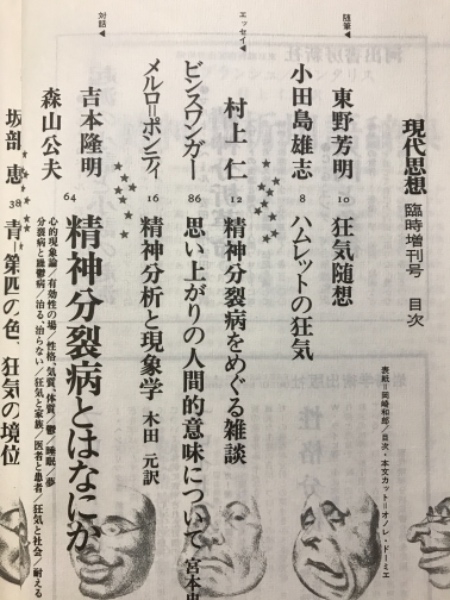 現代思想 臨時増刊号 目次
表紙=岡崎和郎/目次・本文カット=オノレ・ドーミエ
随筆◀
東野芳明 10 狂気随想
小田島雄志 8 ハムレットの狂気
エッセイ◀
村上 仁 12 精神分裂病をめぐる雑談
ビンスワンガー 86 思い上がりの人間的意味について 宮本忠
メルロ=ポンティ 16 精神分析と現象学 木田 元訳
対話◀
吉本隆明
森山公夫
64 精神分裂病とはなにか
心的現象論/有効性の場/性格、気質、体質/鬱/睡眠/夢
分裂病と躁鬱病/治る、治らない/狂気と家族、医者と患者/狂気と社会/耐える
坂部 恵 38 青=第四の色、狂気の境位